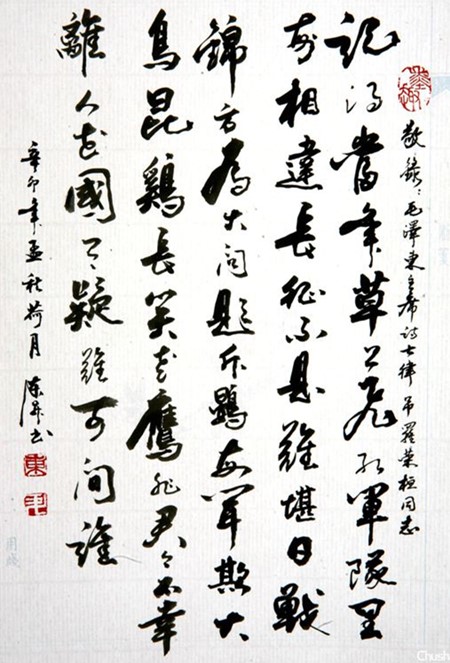 敬錄：毛澤東主席詩七律 吊羅榮桓同志
記得當年草上飛紅軍隊里
每相違長征不是難堪日戰
錦方為大問題斥鷃每聞欺大
鳥昆鷄長笑老鷹非君今不幸
離人世國有疑難可問誰
辛卯年孟秋荷月
Chush